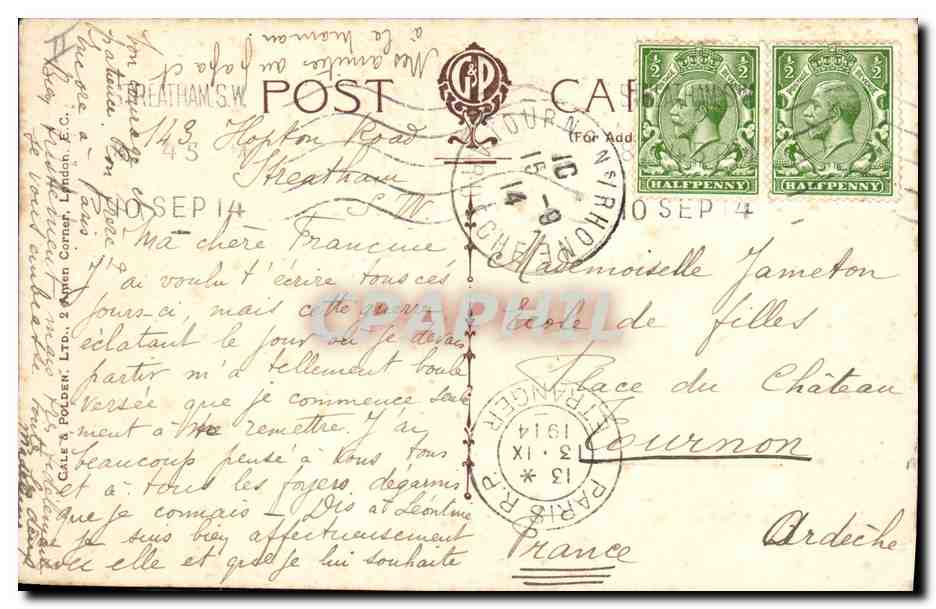 POST CARD
G&P
(For Add
STREATHAM. S.W.
10 SEP 14
10 SEP 14
1/2 1/2
HALFPENNY
1/2 1/2
HALFPENNY
TOURNON S/RHONE
ARDECHE
1C
15 - 9
14
PARIS R.P.
ETRANGER
13 *
13 · IX
1914
CPAPHIL
GALE & POLDEN, LTD., 2 Amen Corner, London, E.C.
143 Hopton Road
Streatham
S.W.
Ma chère Francine
J'ai voulu t'écrire tous ces
jours-ci, mais cette guerre
éclatant le jour où je devais
partir m'a tellement boule
versée que je commence seule
ment à me remettre. J'ai
beaucoup pensé à vous tous
et à tous les foyers dégarnis
que je connais — Dis à Léontine
que je suis bien affectueusement
avec elle et que je lui souhaite
son courage et
patience. Mon frère
encore à Paris
Je vous embrasse
Mes amitiés au papa et
à la maman
Mademoiselle Jameton
École de filles
Place du Château
Tournon
Ardèche
France